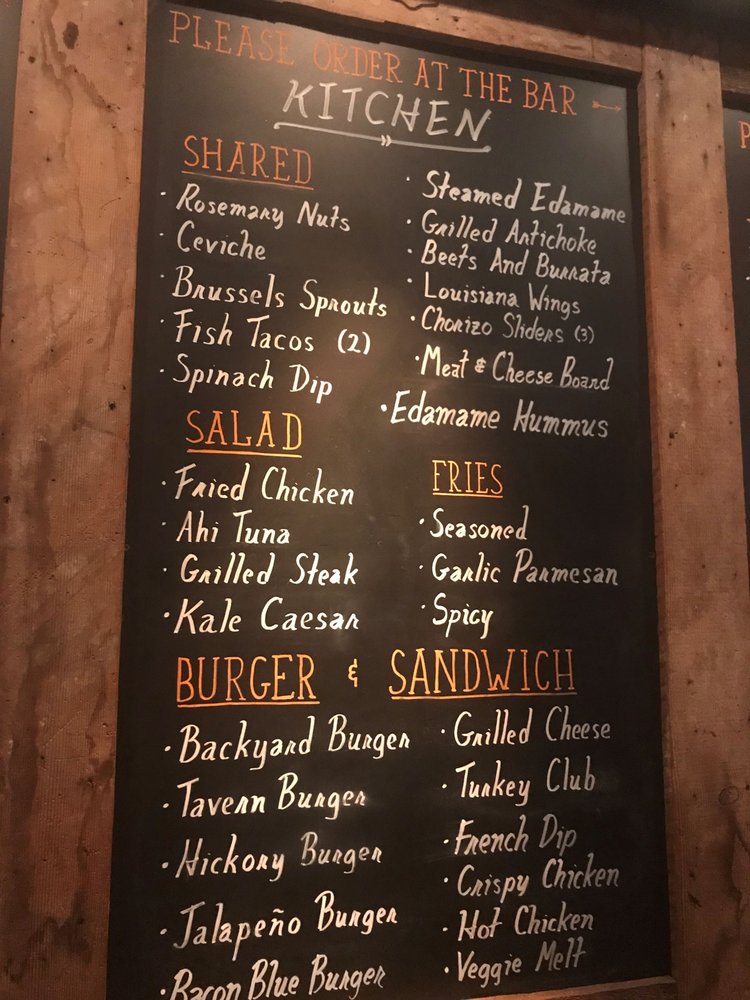 PLEASE ORDER AT THE BAR →
KITCHEN
SHARED
· Rosemary Nuts
· Ceviche
· Brussels Sprouts
· Fish Tacos (2)
· Spinach Dip
· Steamed Edamame
· Grilled Antichoke
· Beets And Burrata
· Louisiana Wings
· Chorizo Sliders (3)
· Meat & Cheese Board
· Edamame Hummus
SALAD
· Fried Chicken
· Ahi Tuna
· Grilled Steak
· Kale Caesar
FRIES
· Seasoned
· Garlic Parmesan
· Spicy
BURGER & SANDWICH
· Backyard Burger
· Tavern Burger
· Hickory Burger
· Jalapeño Burger
· Bacon Blue Burger
· Grilled Cheese
· Turkey Club
· French Dip
· Crispy Chicken
· Hot Chicken
· Veggie Melt